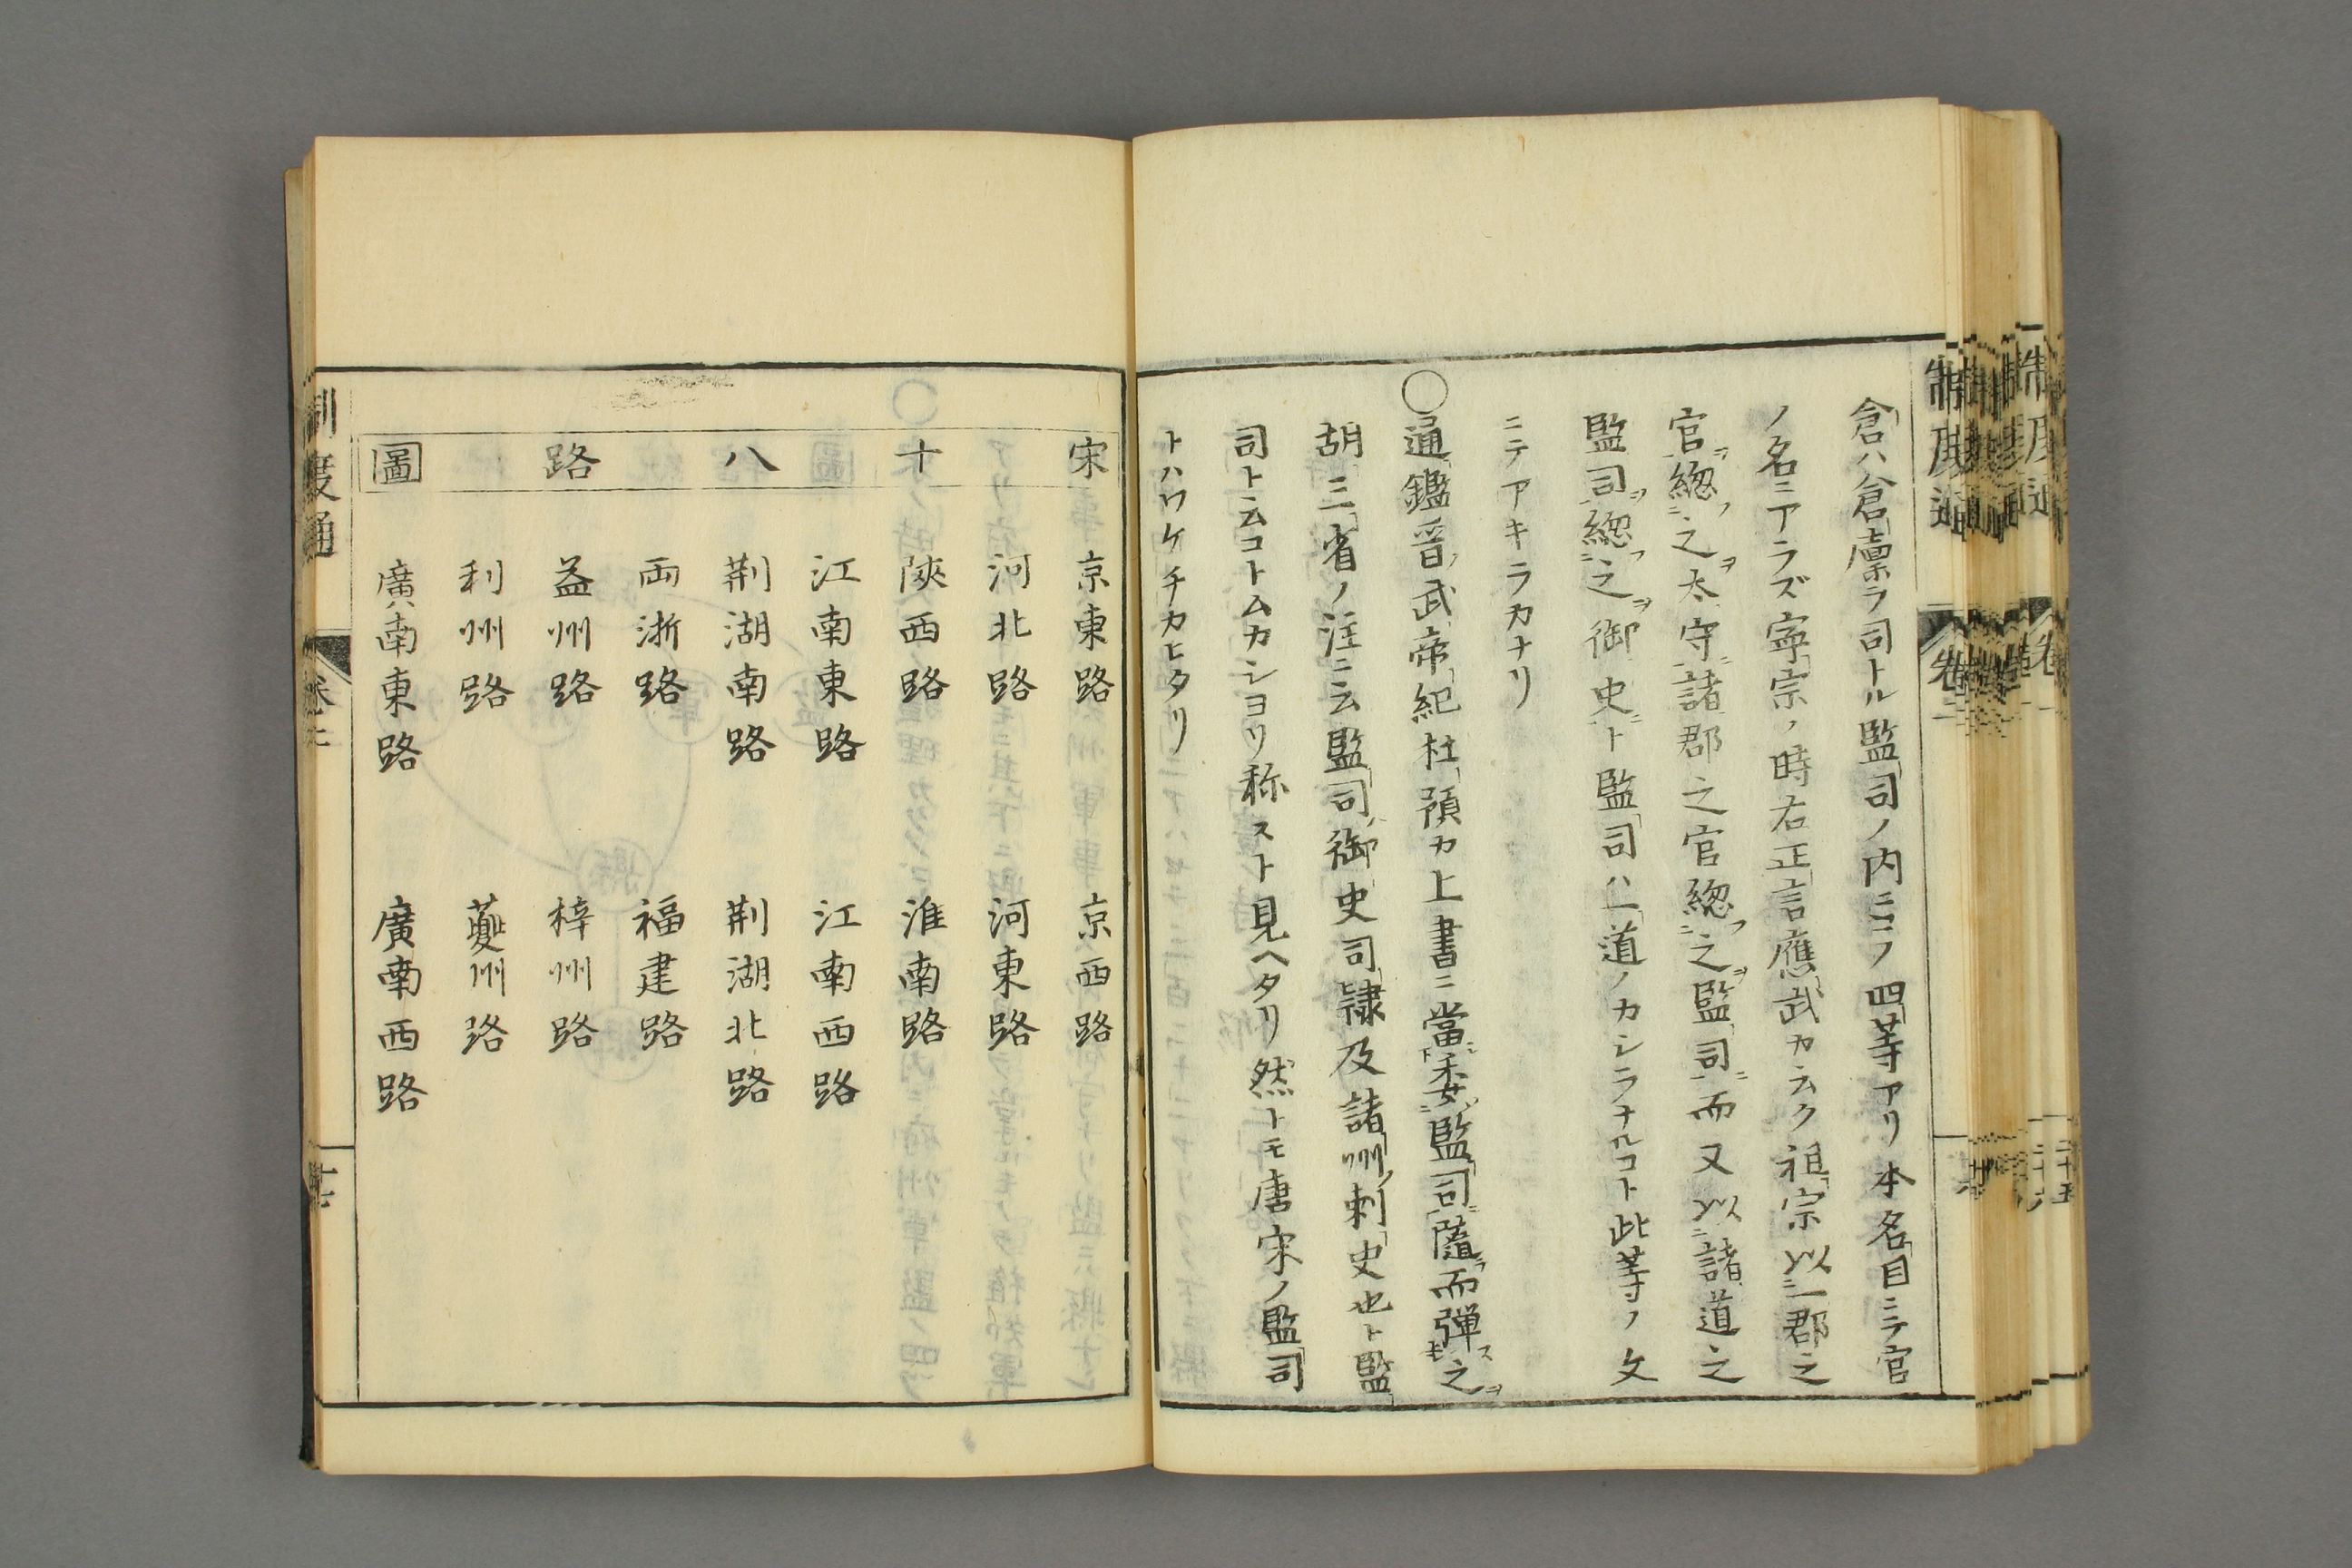 倉ハ倉廩ヲ司トル監司ノ内ニコノ四等アリ本名目ニテ官
ノ名ニアラズ寧宗ノ時右正言應武カ云ク祖宗以一郡之
官總之太守諸郡之官總之監司而又以諸道之
監司總之御史ト監司ハ一道ノカシラナルコト此等ノ文
ニテアキラカナリ
○通鑑晋武帝紀杜預カ上書ニ當委監司隨而弾之
胡三省ノ注ニ云監司御史司隷及諸州刺史也ト監
司ト云コトムカシヨリ称スト見ヘタリ然トモ唐宋ノ監司
トハワケチカヒタリ
宋十八路圖
京東路 京西路
河北路 河東路
陝西路 淮南路
江南東路 江南西路
荆湖南路 荆湖北路
両浙路 福建路
益州路 梓州路
利州路 夔州路
廣南東路 廣南西路
制度通